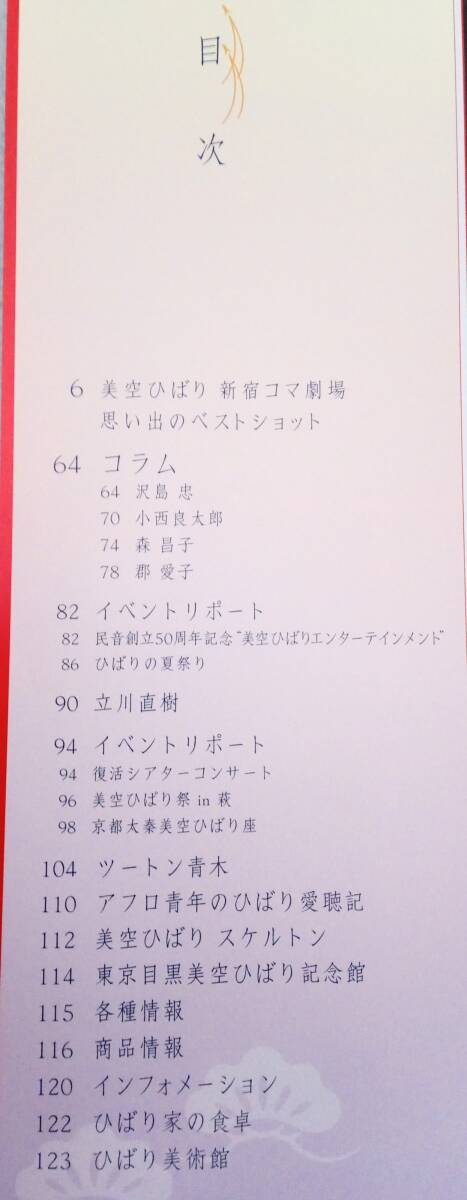 目次
6 美空ひばり 新宿コマ劇場
思い出のベストショット
64 コラム
64 沢島 忠
70 小西良太郎
74 森 昌子
78 郡 愛子
82 イベントリポート
82 民音創立50周年記念“美空ひばりエンターテインメント”
86 ひばりの夏祭り
90 立川直樹
94 イベントリポート
94 復活シアターコンサート
96 美空ひばり祭 in 萩
98 京都太秦美空ひばり座
104 ツートン青木
110 アフロ青年のひばり愛聴記
112 美空ひばり スケルトン
114 東京目黒美空ひばり記念館
115 各種情報
116 商品情報
120 インフォメーション
122 ひばり家の食卓
123 ひばり美術館